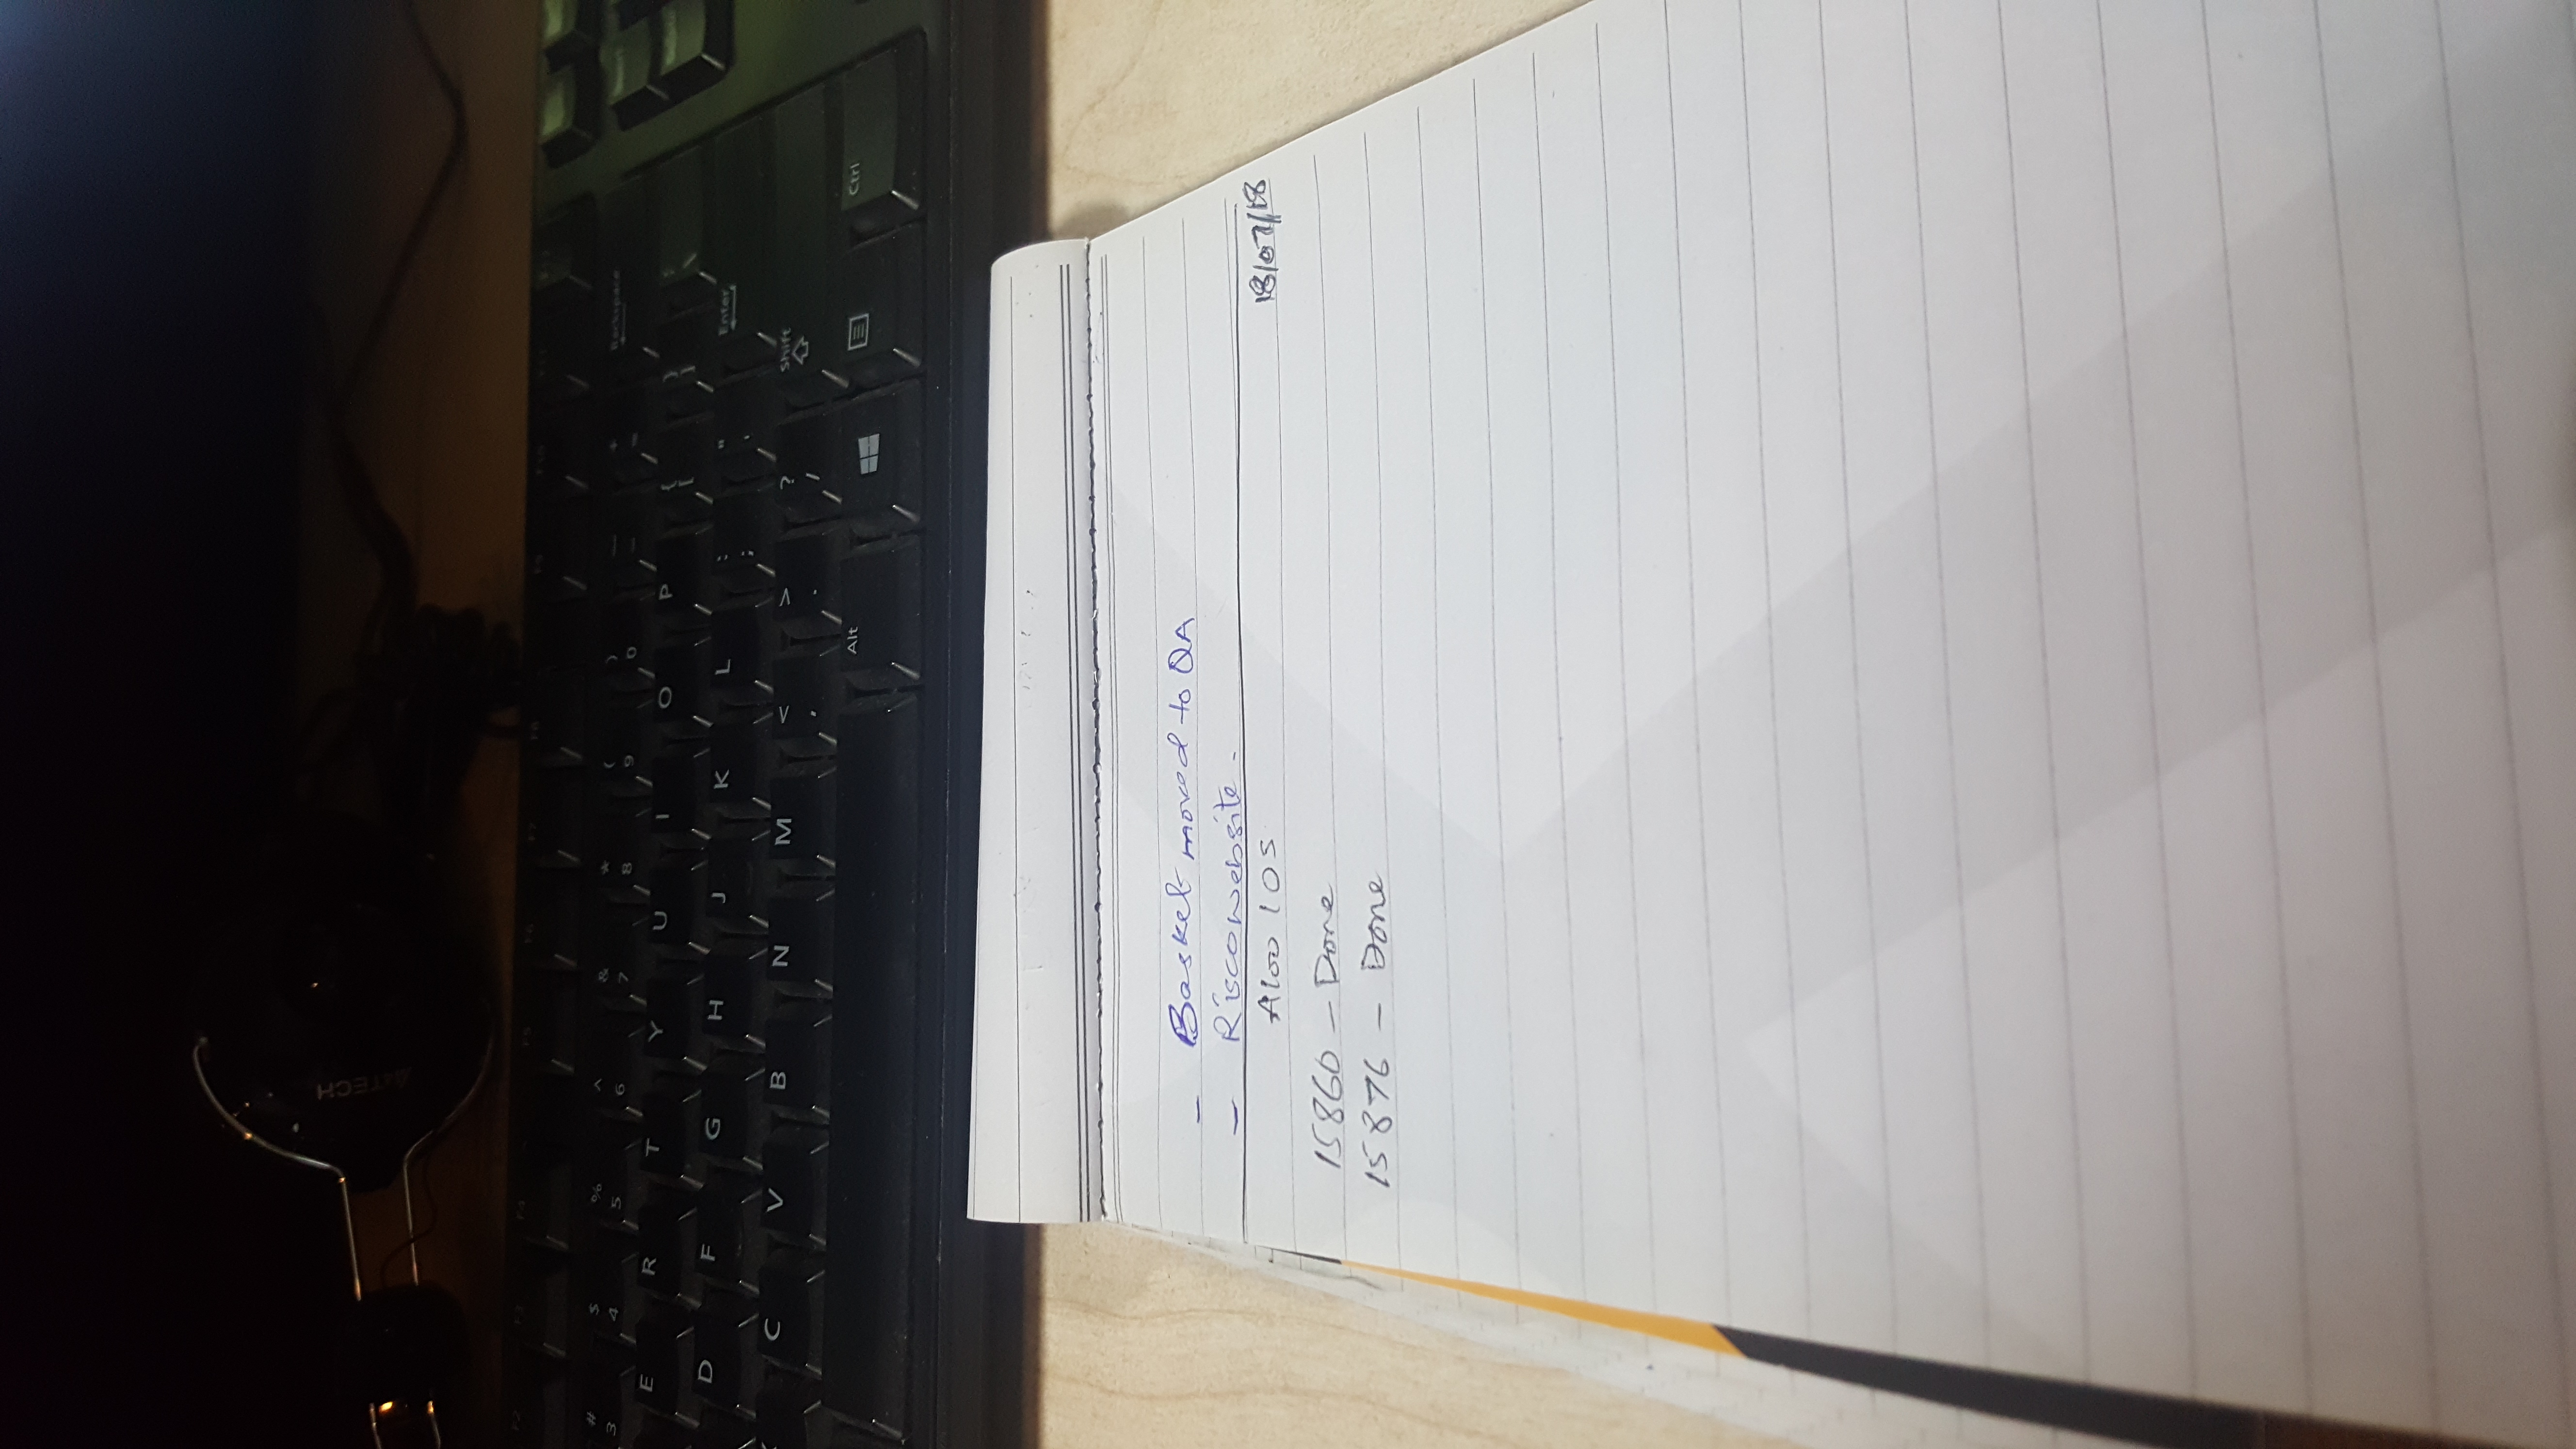 A4TECH
F2 F3 F4 F5 F6 F7 F8 F9 F10 F11
# $ % ^ & * ( ) — +
3 4 5 6 7 8 9 0 - = Backspace
E R T Y U I O P { } 
[ ] \
D F G H J K L : " Enter
; '
C V B N M < > ? Shift
, . /
Alt Ctrl
- Basket moved to QA
- Risco website.
Aloo IOS 18/07/18
15860 - Done
15876 - Done